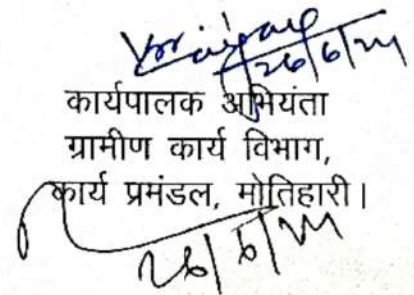 26/6/24
कार्यपालक अभियंता
ग्रामीण कार्य विभाग,
कार्य प्रमंडल, मोतिहारी।
26/6/24